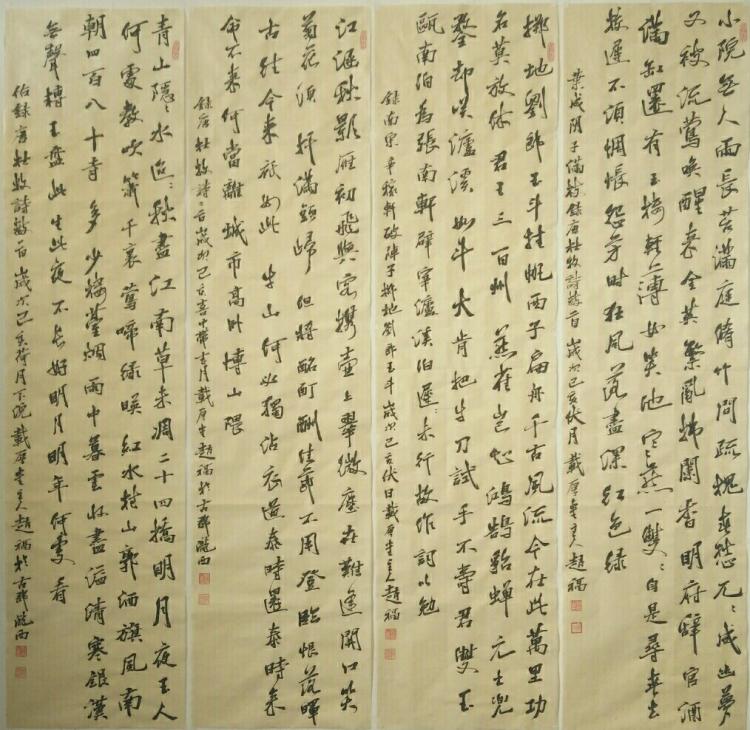 小院無人雨長苔滿庭脩竹間疏槐春愁兀々成幽夢
又被流鶯喚醒來金英繁亂拂闌香明府辭官酒
滿缸還有玉樓輕薄女笑他寒燕一雙々自是尋春去
挍遲不須惆悵怨芳時狂風落盡深紅色綠
葉成陰子滿枝錄唐杜牧詩數首歲次己亥伏月戴厚堂主人趙福
擲地劉郎玉斗挂帆西子扁舟千古風流今在此萬里功
名莫放休君王三百州燕雀豈知鴻鵠貂蟬元出兜
鍪却笑瀘溪如斗大肯把牛刀試手不壽君雙玉
甌南伯為張南軒辟宰瀘溪伯遲々未行故作詞以勉
錄南宋辛稼軒破陣子擲地劉郎玉斗歲次己亥伏日戴厚堂主人趙福
江涵秋影雁初飛與客攜壺上翠微塵世難逢開口笑
菊花須插滿頭歸但將酩酊酬佳節不用登臨恨落暉
古往今來祇如此牛山何必獨沾衣道泰時還泰時來
命不來何當離城市高卧博山隈
錄唐杜牧詩二首歲次己亥月戴厚堂趙福於古郡隴西
青山隱々水迢々秋盡江南草未凋二十四橋明月夜玉人
何處教吹簫千里鶯啼綠映紅水村山郭酒旗風南
朝四百八十寺多少樓臺烟雨中暮雲收盡溢清寒銀漢
無聲轉玉盤此生此夜不長好明月明年何處看
錄唐杜牧詩數首歲次己亥荷月下晚戴厚堂主人趙福於古郡隴西